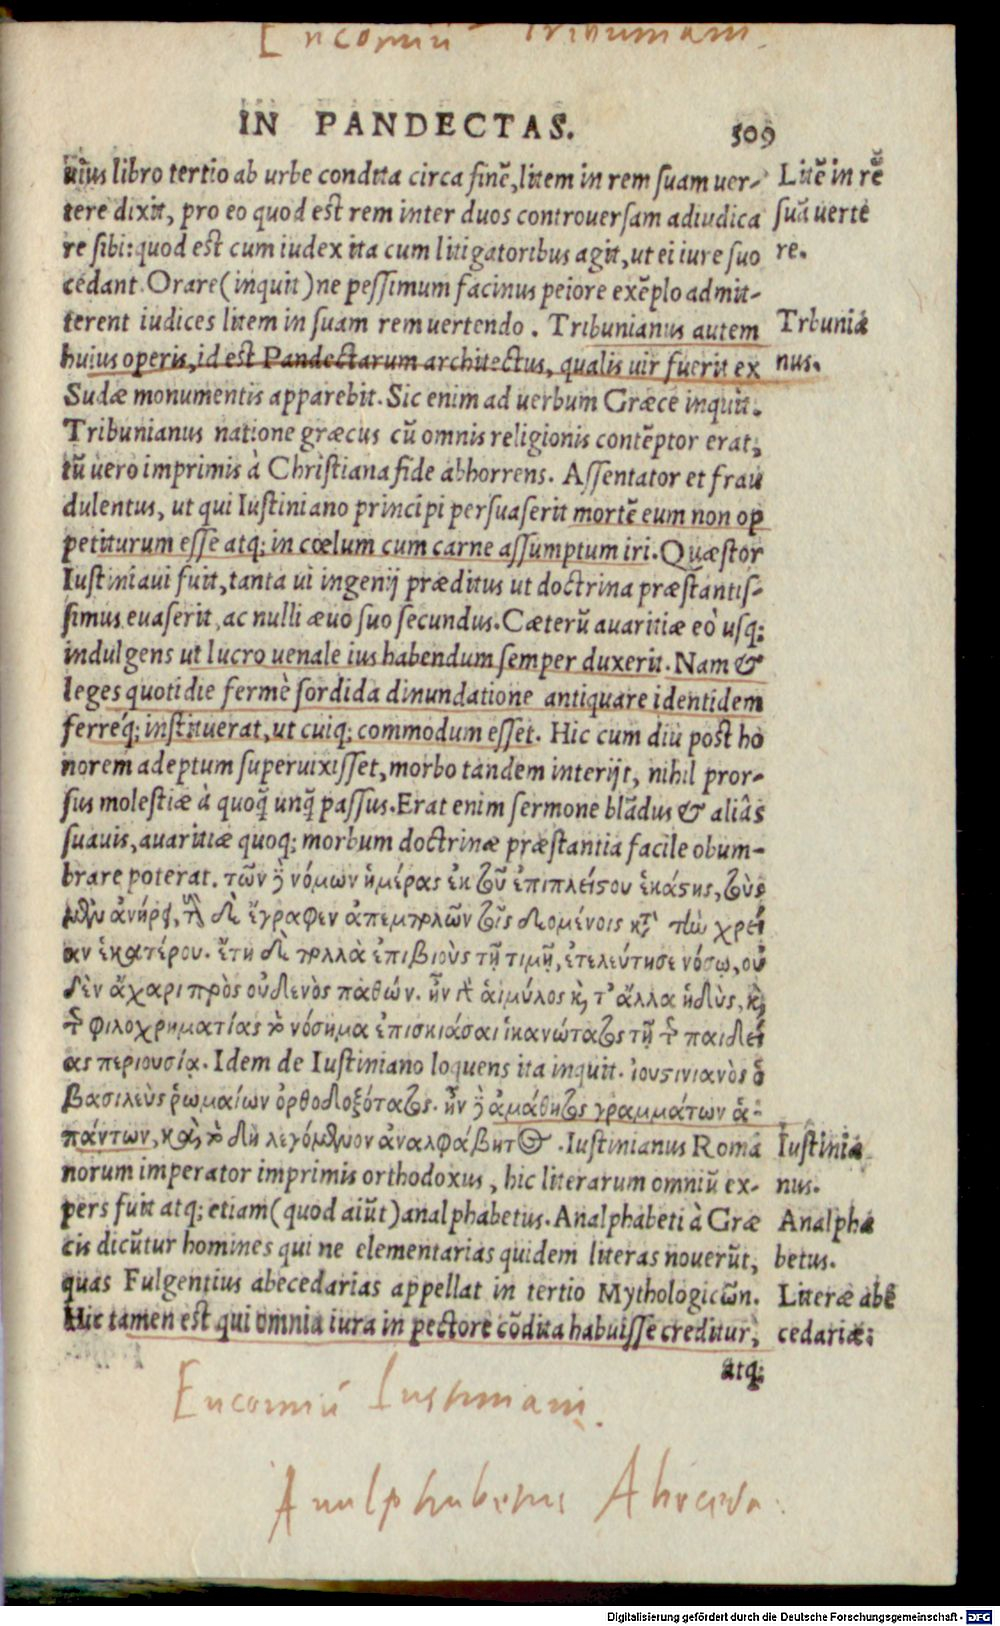 Encomiū Tribuniani.
IN PANDECTAS. 509
uius libro tertio ab urbe condita circa finē, litem in rem suam uer-
tere dixit, pro eo quod est rem inter duos controuersam adiudica
re sibi: quod est cum iudex ita cum litigatoribus agit, ut ei iure suo
cedant. Orare (inquit) ne pessimum facinus peiore exēplo admit-
terent iudices litem in suam rem uertendo. Tribunianus autem
huius operis, id est Pandectarum architectus, qualis uir fuerit ex
Sudæ monumentis apparebit. Sic enim ad uerbum Græce inquit.
Tribunianus natione græcus cū omnis religionis contēptor erat,
tū uero imprimis à Christiana fide abhorrens. Assentator et frau
dulentus, ut qui Iustiniano principi persuaserit mortē eum non op
petiturum esse atq; in cœlum cum carne assumptum iri. Quæstor
Iustiniaui fuit, tanta ui ingenij præditus ut doctrina præstantis-
simus euaserit, ac nulli æuo suo secundus. Cæterū auaritiæ eò usq;
indulgens ut lucro uenale ius habendum semper duxerit. Nam &
leges quotidie fermè sordida dinundatione antiquare identidem
ferréq; instituerat, ut cuiq; commodum esset. Hic cum diu post ho
norem adeptum superuixisset, morbo tandem interijt, nihil pror-
sus molestiæ à quoq̃ unq̃ passus. Erat enim sermone blādus & aliàs
suauis, auaritiæ quoq; morbum doctrinæ præstantia facile obum-
brare poterat. τῶν ϳ νόμων ἡμέρας ἐκ τοῦ ἐπιπλεῖσου ἑκάσης, τοὺς
μὲν ἀνήρει, τοὺς δὲ ἔγραφεν ἀπεμπολῶν τοῖς δεομένοις κτ̀ τὼ χρεί
αν ἑκατέρου. ἔτη δὲ πολλὰ ἐπιβιοὺς τῇ τιμῇ, ἐτελεύτησε νόσῳ, οὐ
δὲν ἄχαρι πρὸς οὐδενὸς παθών. ἦν γὰρ αἱμύλος κὶ τ᾽ ἄλλα ἡδὺς, κὶ
τ̃ φιλοχρηματίας τὸ νόσημα ἐπισκιάσαι ἱκανώτατος τῇ τ̃ παιδεί
ας περιουσίᾳ. Idem de Iustiniano loquens ita inquit. ἰουσινιανὸς ὁ
βασιλεὺς ῥωμαίων ὀρθοδοξότατος. ἦν ϳ ἀμάθητος γραμμάτων ἁ-
πάντων, κὶ τὸ δὴ λεγόμενον ἀναλφάβητος. Iustinianus Romā
norum imperator imprimis orthodoxus, hic literarum omniū ex-
pers fuit atq; etiam (quod aiūt) analphabetus. Analphabeti à Græ
cis dicūtur homines qui ne elementarias quidem literas nouerūt,
quas Fulgentius abecedarias appellat in tertio Mythologicῶν.
Hic tamen est qui omnia iura in pectore cōdita habuisse creditur,
atq;
Litē in rē
suā uerte
re.
Trbuniā
nus.
Iustiniā
nus.
Analpha
betus.
Literæ abē
cedariæ:
Encomiū Iustiniani.
Analphabetus Abeceda.
Digitalisierung gefördert durch die Deutsche Forschungsgemeinschaft - DFG